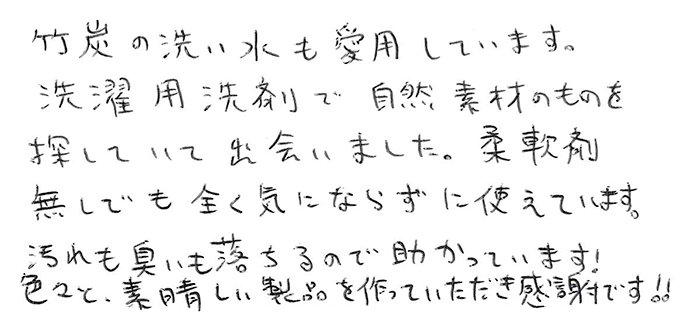 竹炭の洗い水も愛用しています。
洗濯用洗剤で自然素材のものを
探していて出会いました。柔軟剤
無しでも全く気にならずに使えています。
汚れも臭いも落ちるので助かっています!
色々と、素晴しい製品を作っていただき感謝です!!